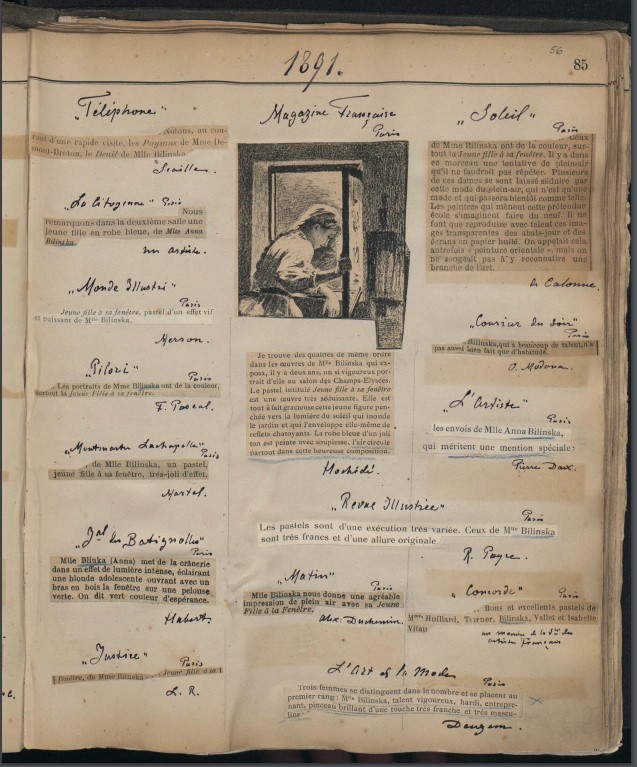 56
85
1891.
„Téléphone"
Notons, au cou-
rant d'une rapide visite, les Paysans de Mme De-
mont-Breton, le Deuil de Mlle Bilinska
„La Citoyenne" Paris
Nous
remarquons dans la deuxième salle une
jeune fille en robe bleue, de Mlle Anna
Bilinska
un artiste.
„Monde Illustré"
Paris
Jeune fille à sa fenêtre, pastel d'un effet vif
et puissant de Mlle Bilinska.
Merson.
„Pilori"
Paris
Les portraits de Mme Bilinska ont de la couleur,
surtout la Jeune Fille à sa fenêtre.
F. Pascal.
„Montmartre Lachapelle"
Paris
de Mlle Bilinska, un pastel,
jeune fille à sa fenêtre, très-joli d'effet,
Martel.
„Jal des Batignolles"
Paris
Mlle Blinka (Anna) met de la crânerie
dans un effet de lumière intense, éclairant
une blonde adolescente ouvrant avec un
bras en bois la fenêtre sur une pelouse
verte. On dit vert couleur d'espérance.
Habert.
„Justice"
Paris
Jeune fille à sa
fenêtre, de Mme Bilinska
L. R.
Magazine Française
Paris
Je trouve des qualités de même ordre
dans les œuvres de Mlle Bilinska qui ex-
posa, il y a deux ans, un si vigoureux por-
trait d'elle au salon des Champs-Elysées.
Le pastel intitulé Jeune fille à sa fenêtre
est une œuvre très séduisante. Elle est
tout à fait gracieuse cette jeune figure pen-
chée vers la lumière du soleil qui inonde
le jardin et qui l'enveloppe elle-même de
reflets chatoyants. La robe bleue d'un joli
ton est peinte avec souplesse, l'air circule
partout dans cette heureuse composition.
Hochidé.
„Revue Illustrée"
Paris
Les pastels sont d'une exécution très variée. Ceux de Mme Bilinska
sont très francs et d'une allure originale.
R. Payre.
„Matin"
Paris
Mlle Bilinska nous donne une agréable
impression de plein air avec sa Jeune
Fille à la Fenêtre.
Alex.
L'Art et la Mode
Paris
Trois femmes se distinguent dans le nombre et se placent au
premier rang : Mlle Bilinska, talent vigoureux, hardi, entrepre-
nant, pinceau brillant d'une touche très franche et très mascu-
line
„Soleil"
Paris
Ceux
de Mme Bilinska ont de la couleur, sur-
tout la Jeune fille à sa fenêtre. Il y a dans
ce morceau une tentative de pleinair
qu'il ne faudrait pas répéter. Plusieurs
de ces dames se sont laissé séduire par
cette mode du plein-air, qui n'est qu'une
mode et qui passera bientôt comme telle.
Les peintres qui mènent cette prétendue
école s'imaginent faire du neuf. Il ne
font que reproduire avec talent ces ima-
ges transparentes des abat-jour et des
écrans en papier huilé. On appelait cela
autrefois « peinture orientale », mais on
ne songeait pas à y reconnaître une
branche de l'art.
de Calonne.
„Courrier du Soir"
Paris
Bilinska, qui a beaucoup de talent, n'a
pas aussi bien fait que d'habitude.
O.
„L'Artiste"
Paris
les envois de Mlle Anna Bilinska,
qui méritent une mention spéciale :
Pierre Dax.
„Concorde"
Paris
Bons et excellents pastels de
Mmes Holliard, Turner, Bilinska, Vallet et Isabelle
Vitau
un membre de la Sté des
artistes Français